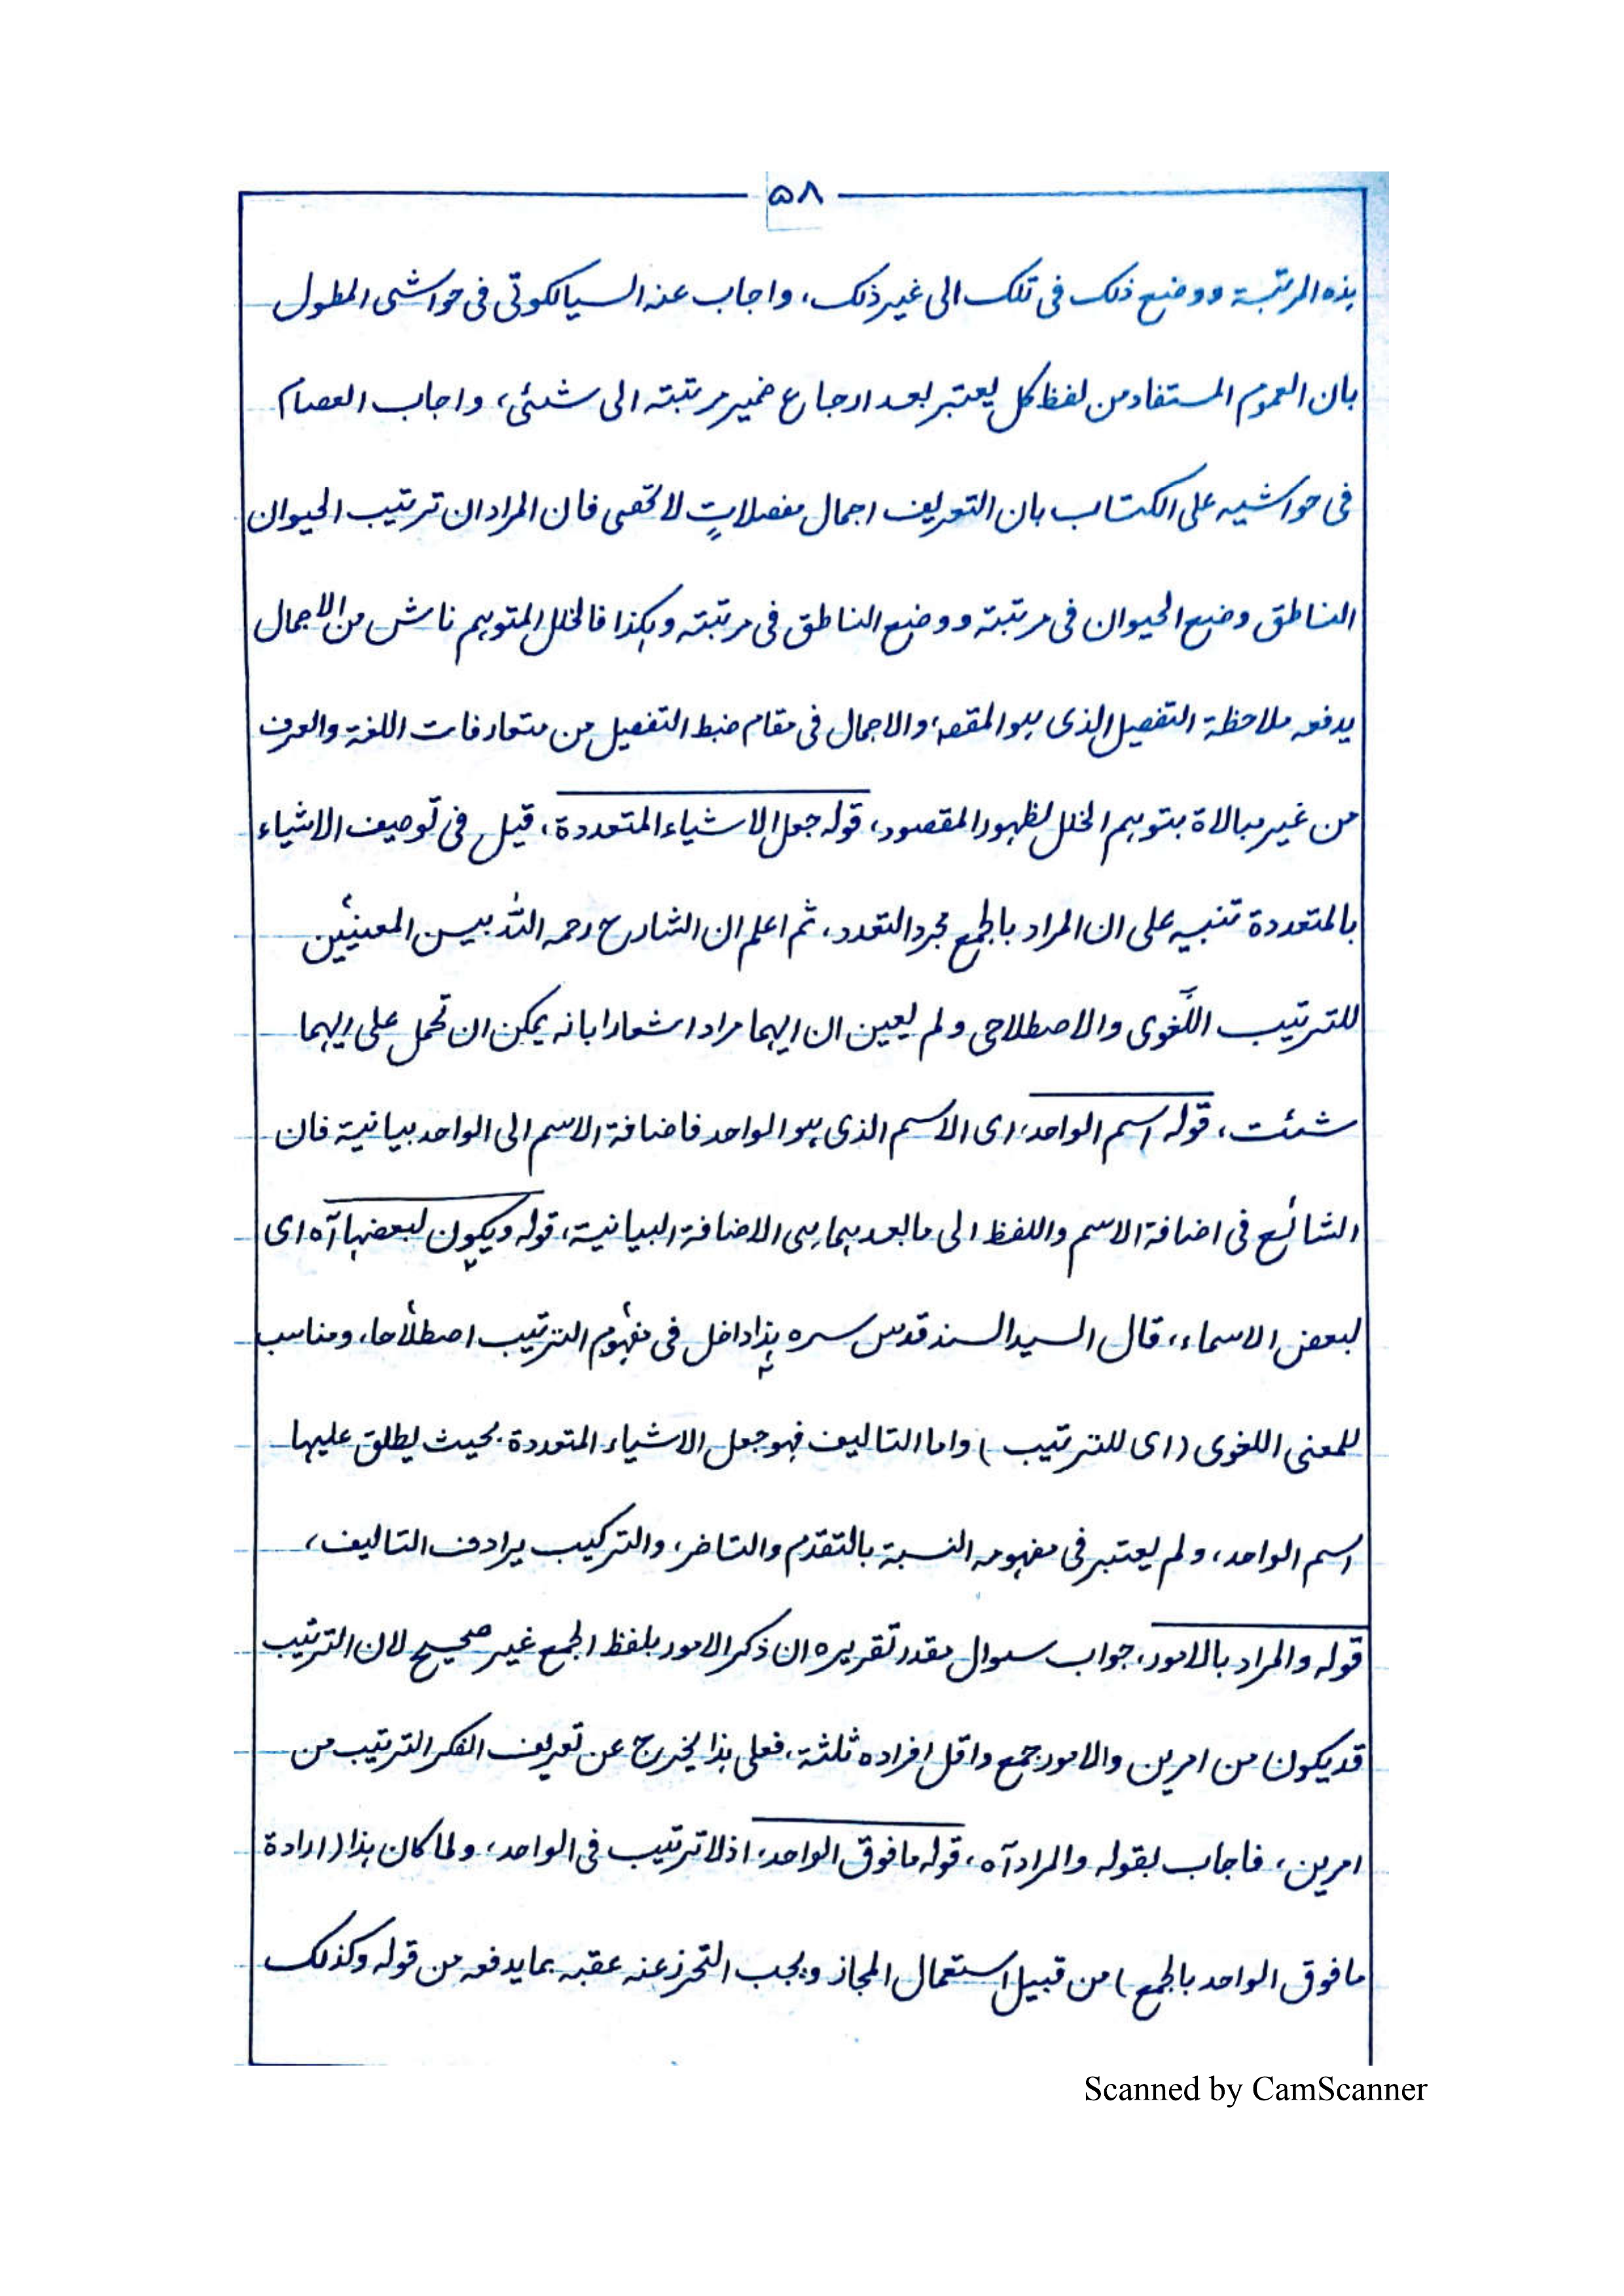 ۵۸
هذه المرتبة ووضع ذلك فى تلك الى غير ذلك، واجاب عنه السيالكوتى فى حواشى المطول
بان العموم المستفاد من لفظ كل يعتبر بعد ارجاع ضمير مرتبته الى شئى، واجاب العصام
فى حواشيه على الكتاب بان التعريف اجمال مفصلاتٍ لا تحصى فان المراد ان ترتيب الحيوان
الناطق وضع الحيوان فى مرتبته ووضع الناطق فى مرتبته وهكذا فالخلل المتوهم ناش من الاجمال
يدفعه ملاحظة التفصيل الذى هو المقصد، والاجمال فى مقام ضبط التفصيل من متعارفات اللغة والعرف
من غير مبالاة بتوهم الخلل لظهور المقصود، قوله جعل الاشياء المتعددة، قيل فى توصيف الاشياء
بالمتعددة تنبيه على ان المراد بالجمع مجرد التعدد، ثم اعلم ان الشارح رحمه الله بين المعنيين
للترتيب اللّغوى والاصطلاحى ولم يعين ان ايهما مراد اشعارا بانه يمكن ان تحمل على ايهما
شئت، قوله اسم الواحد، اى الاسم الذى هو الواحد فاضافة الاسم الى الواحد بيانية فان
الشائع فى اضافة الاسم واللفظ الى ما بعدهما هى الاضافة البيانية، قوله ويكون لبعضها آه اى
لبعض الاسماء، قال السيد السند قدس سره هذا داخل فى مفهوم الترتيب اصطلاحا، ومناسب
للمعنى اللغوى (اى للترتيب) واما التاليف فهو جعل الاشياء المتعددة بحيث يطلق عليها
اسم الواحد، ولم يعتبر فى مفهومه النسبة بالتقدم والتاخر، والتركيب يرادف التاليف،
قوله والمراد بالامور، جواب سوال مقدر تقريره ان ذكر الامور بلفظ الجمع غير صحيح لان الترتيب
قد يكون من امرين والامور جمع واقل افراده ثلثة، فعلى هذا يخرج عن تعريف الفكر الترتيب من
امرين، فاجاب بقوله والمراد آه، قوله ما فوق الواحد، اذ لا ترتيب فى الواحد، ولما كان هذا (ارادة
ما فوق الواحد بالجمع) من قبيل استعمال المجاز ويجب التحرز عنه عقبه بما يدفعه من قوله وكذلك
Scanned by CamScanner